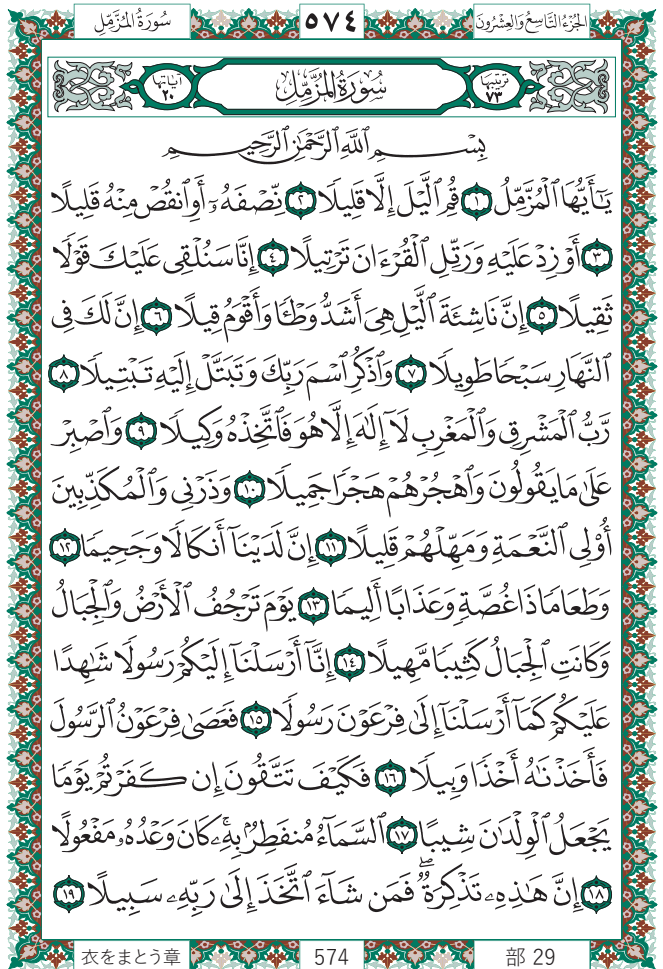 سُورَةُ المُزَّمِّلِ ٥٧٤ الجُزْءُ التَّاسِعُ وَالعِشْرُونَ
آيَاتُهَا ٢٠ سُورَةُ المُزَّمِّلِ تَرْتِيبُهَا ٧٣
بِسْمِ ٱللَّهِ ٱلرَّحْمَٰنِ ٱلرَّحِيمِ
يَٰٓأَيُّهَا ٱلْمُزَّمِّلُ ١ قُمِ ٱلَّيْلَ إِلَّا قَلِيلًا ٢ نِّصْفَهُۥٓ أَوِ ٱنقُصْ مِنْهُ قَلِيلًا
٣ أَوْ زِدْ عَلَيْهِ وَرَتِّلِ ٱلْقُرْءَانَ تَرْتِيلًا ٤ إِنَّا سَنُلْقِى عَلَيْكَ قَوْلًا
ثَقِيلًا ٥ إِنَّ نَاشِئَةَ ٱلَّيْلِ هِىَ أَشَدُّ وَطْـًٔا وَأَقْوَمُ قِيلًا ٦ إِنَّ لَكَ فِى
ٱلنَّهَارِ سَبْحًا طَوِيلًا ٧ وَٱذْكُرِ ٱسْمَ رَبِّكَ وَتَبَتَّلْ إِلَيْهِ تَبْتِيلًا ٨
رَّبُّ ٱلْمَشْرِقِ وَٱلْمَغْرِبِ لَآ إِلَٰهَ إِلَّا هُوَ فَٱتَّخِذْهُ وَكِيلًا ٩ وَٱصْبِرْ
عَلَىٰ مَا يَقُولُونَ وَٱهْجُرْهُمْ هَجْرًا جَمِيلًا ١٠ وَذَرْنِى وَٱلْمُكَذِّبِينَ
أُو۟لِى ٱلنَّعْمَةِ وَمَهِّلْهُمْ قَلِيلًا ١١ إِنَّ لَدَيْنَآ أَنكَالًا وَجَحِيمًا ١٢
وَطَعَامًا ذَا غُصَّةٍ وَعَذَابًا أَلِيمًا ١٣ يَوْمَ تَرْجُفُ ٱلْأَرْضُ وَٱلْجِبَالُ
وَكَانَتِ ٱلْجِبَالُ كَثِيبًا مَّهِيلًا ١٤ إِنَّآ أَرْسَلْنَآ إِلَيْكُمْ رَسُولًا شَٰهِدًا
عَلَيْكُمْ كَمَآ أَرْسَلْنَآ إِلَىٰ فِرْعَوْنَ رَسُولًا ١٥ فَعَصَىٰ فِرْعَوْنُ ٱلرَّسُولَ
فَأَخَذْنَٰهُ أَخْذًا وَبِيلًا ١٦ فَكَيْفَ تَتَّقُونَ إِن كَفَرْتُمْ يَوْمًا
يَجْعَلُ ٱلْوِلْدَٰنَ شِيبًا ١٧ ٱلسَّمَآءُ مُنفَطِرٌۢ بِهِۦۚ كَانَ وَعْدُهُۥ مَفْعُولًا
١٨ إِنَّ هَٰذِهِۦ تَذْكِرَةٌۖ فَمَن شَآءَ ٱتَّخَذَ إِلَىٰ رَبِّهِۦ سَبِيلًا ١٩
衣をまとう章 574 部 29